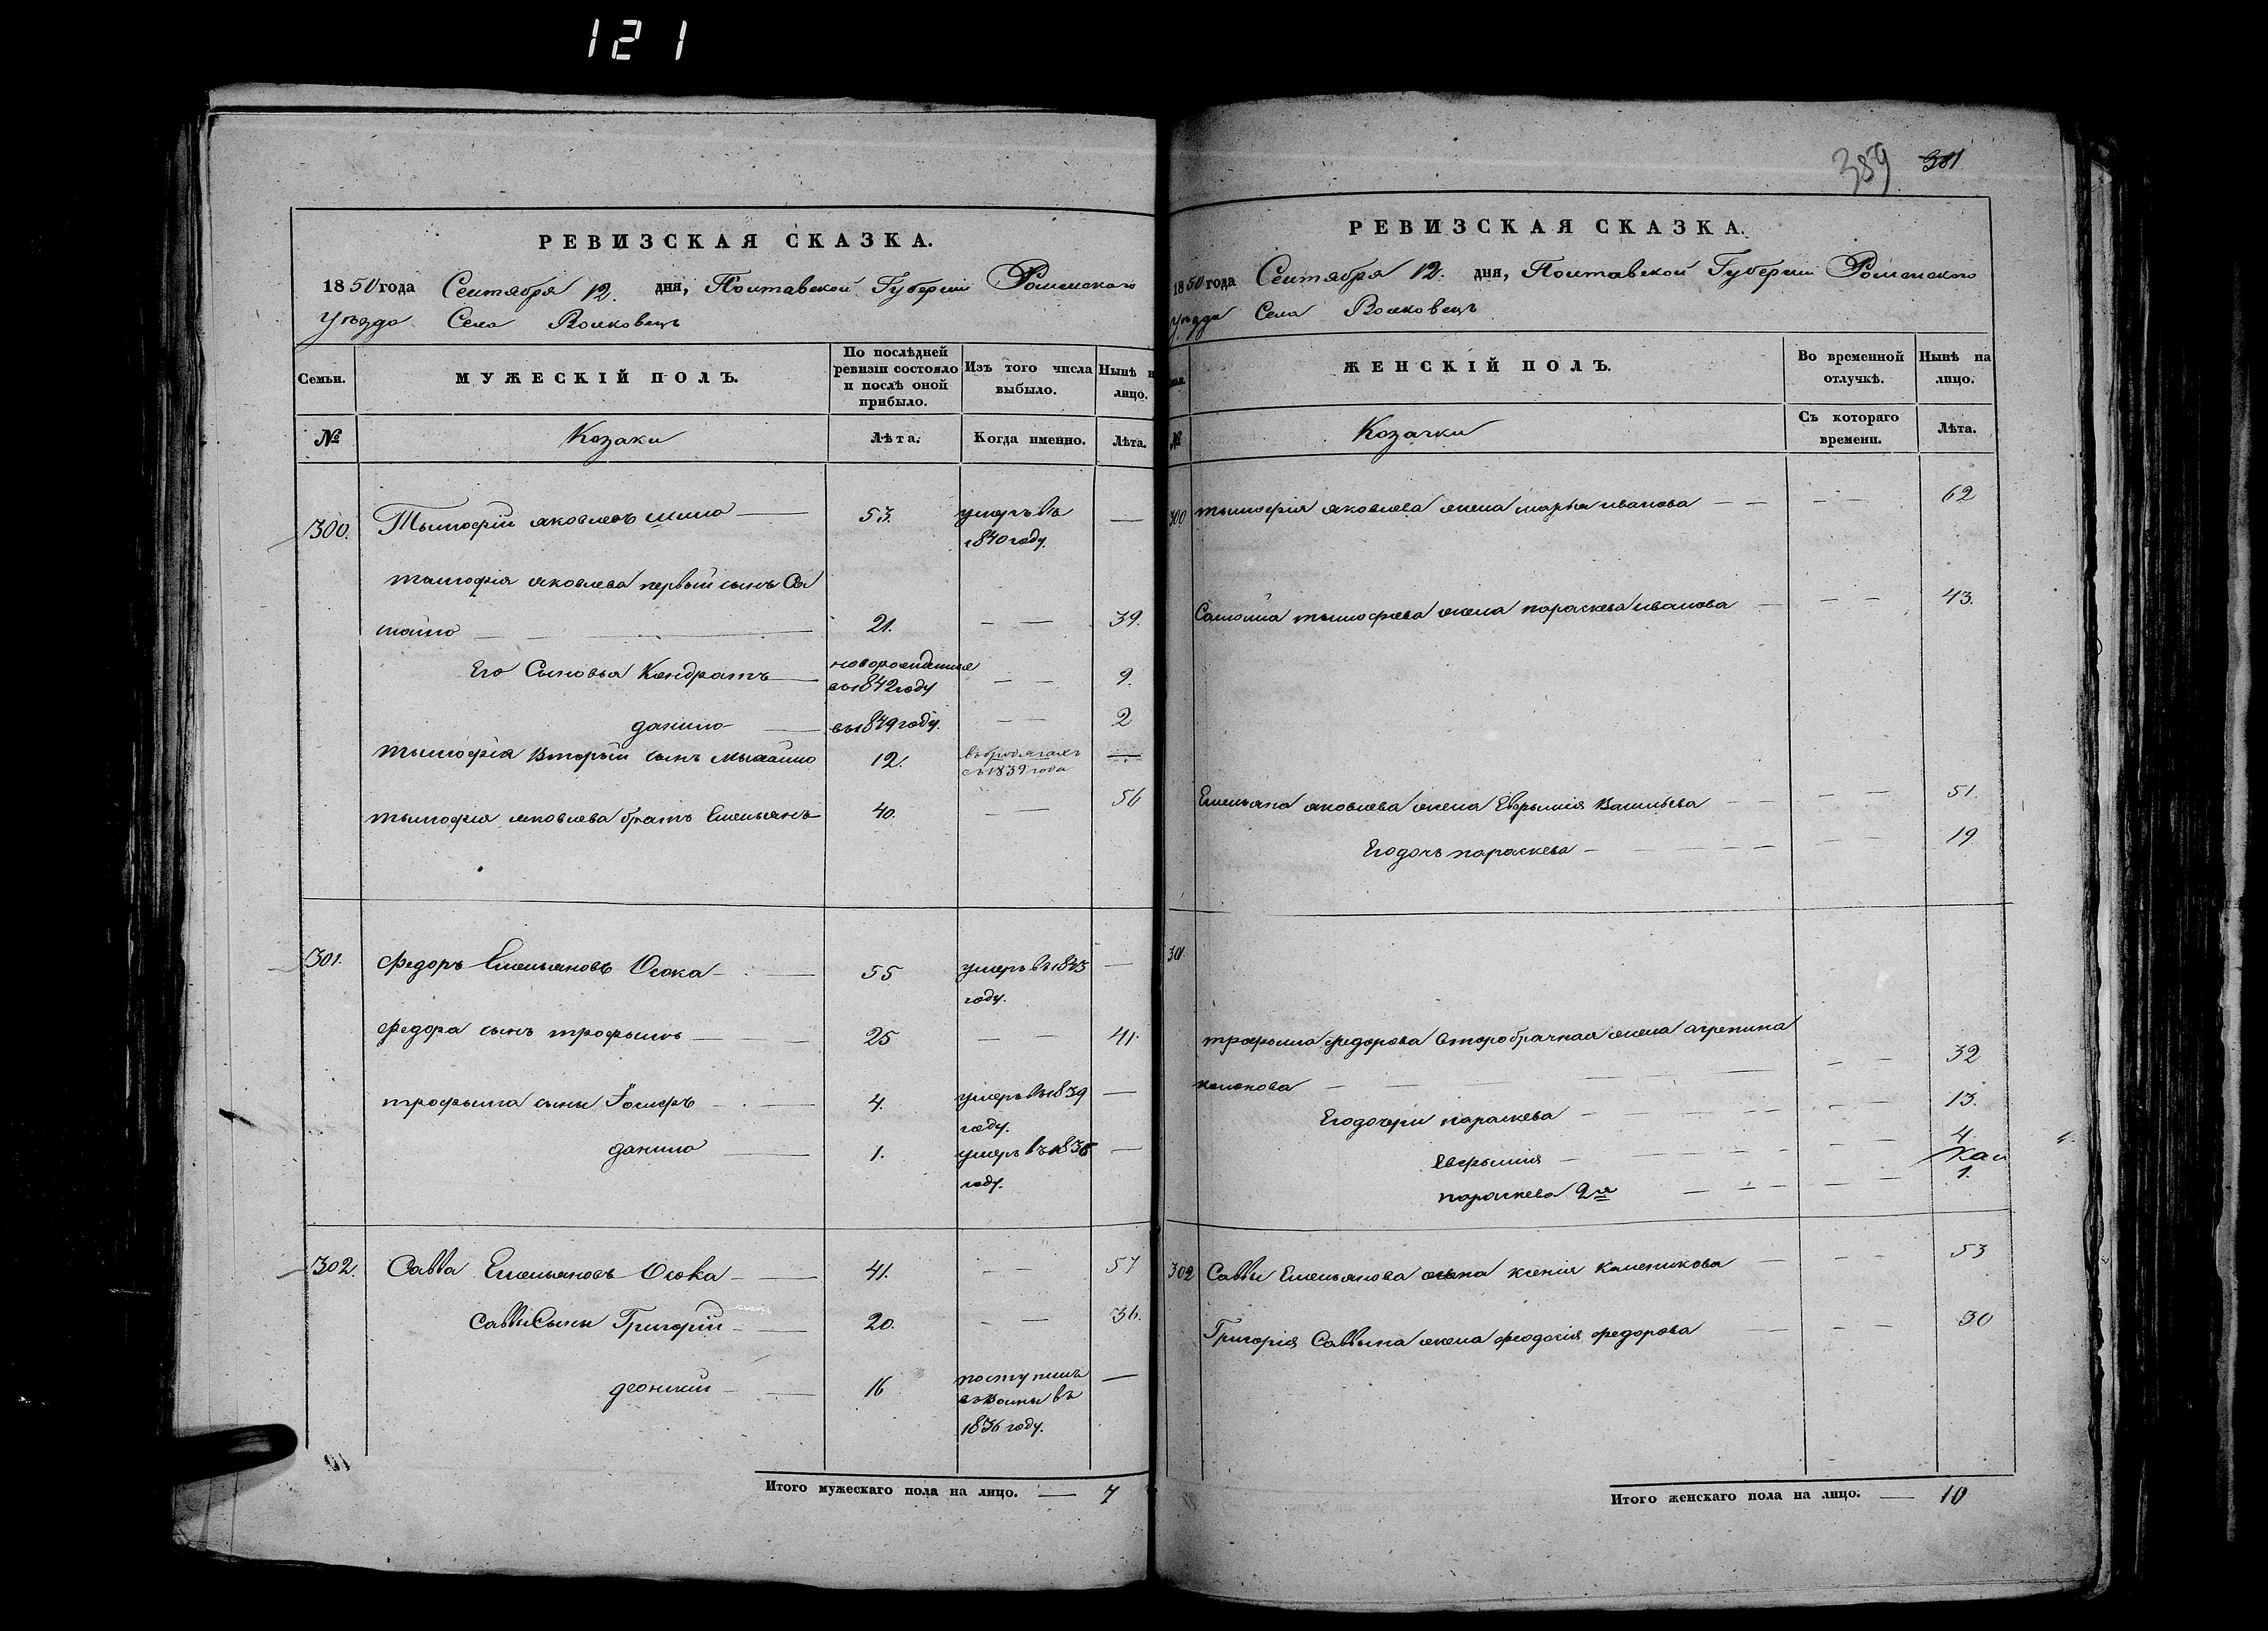 121
РЕВИЗСКАЯ СКАЗКА.
1850 года Сентября 12. дня, Полтавской Губерніи Роменскаго
Уѣзда Села Волковецъ
Семьи.
МУЖЕСКІЙ ПОЛЪ.
По послѣдней ревизіи состояло и послѣ оной прибыло.
Изъ того числа выбыло.
Нынѣ н лицо.
№
Козаки
Лѣта.
Когда именно.
Лѣта.
300. Тымофій яковлевъ 53. умеръ въ —
1840 году.
тымофія яковлева первый сынъ Са
мойло 21. — — 39.
Его Сыновья Кондратъ новорожденные въ 1842 году — — 9.
данило въ 1849 году. — — 2
тымофія вторый сынъ мыхайло 12. въ бродягахъ съ 1839 года —
тымофія яковлева братъ Емельянъ 40. — — 56
301. Федоръ Емельяновъ Осока 55 умеръ въ 1843 —
году.
Федора сынъ трофымъ 25 — — 41.
трофыма сыны Іосифъ 4. умеръ въ 1839 —
году.
данило 1. умеръ въ 1836 —
году.
302. Савва Емельяновъ Осока 41. — — 57
Саввы Сыны Григорій 20. — — 36.
16 поступилъ —
въ
1836 году.
Итого мужескаго пола на лицо. — 7
389 381
РЕВИЗСКАЯ СКАЗКА.
1850 года Сентября 12. дня, Полтавской Губерніи Роменскаго
Уѣзда Села Волковецъ
ЖЕНСКІЙ ПОЛЪ.
Во временной отлучкѣ.
Нынѣ на лицо.
№
Козачки
Съ котораго времени.
Лѣта.
300 тымофія яковлева жена марья иванова — — — — 62
Самойла тымофѣева жена параскева иванова — — — 43.
Емельяна яковлева жена Евфымія Васильева — — — 51.
Его дочь параскева — — — 19
301
трофыма федорова второбрачная жена агрепина
— — 32
Его дочери параскева — — — 13.
Евфымія — — — 4
параскева 2я — — — 1.
302 Саввы Емельянова жена ксенія — — — 53
Григорія Саввына жена феодосія федорова — — — 30
Итого женскаго пола на лицо. — 10